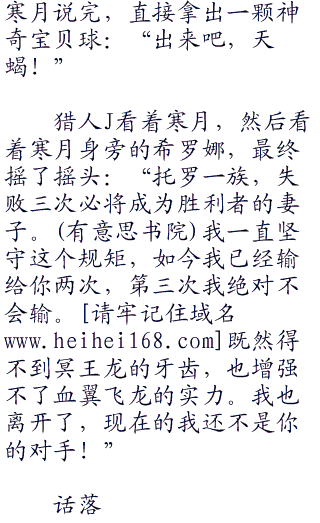 寒月说完，直接拿出一颗神
奇宝贝球：“出来吧，天
蝎！”
猎人J看着寒月，然后看
着寒月身旁的希罗娜，最终
摇了摇头：“托罗一族，失
败三次必将成为胜利者的妻
子。(有意思书院)我一直坚
守这个规矩，如今我已经输
给你两次，第三次我绝对不
会输。[请牢记住域名
www.heihei168.com]既然得
不到冥王龙的牙齿，也增强
不了血翼飞龙的实力。我也
离开了，现在的我还不是你
的对手！”
话落